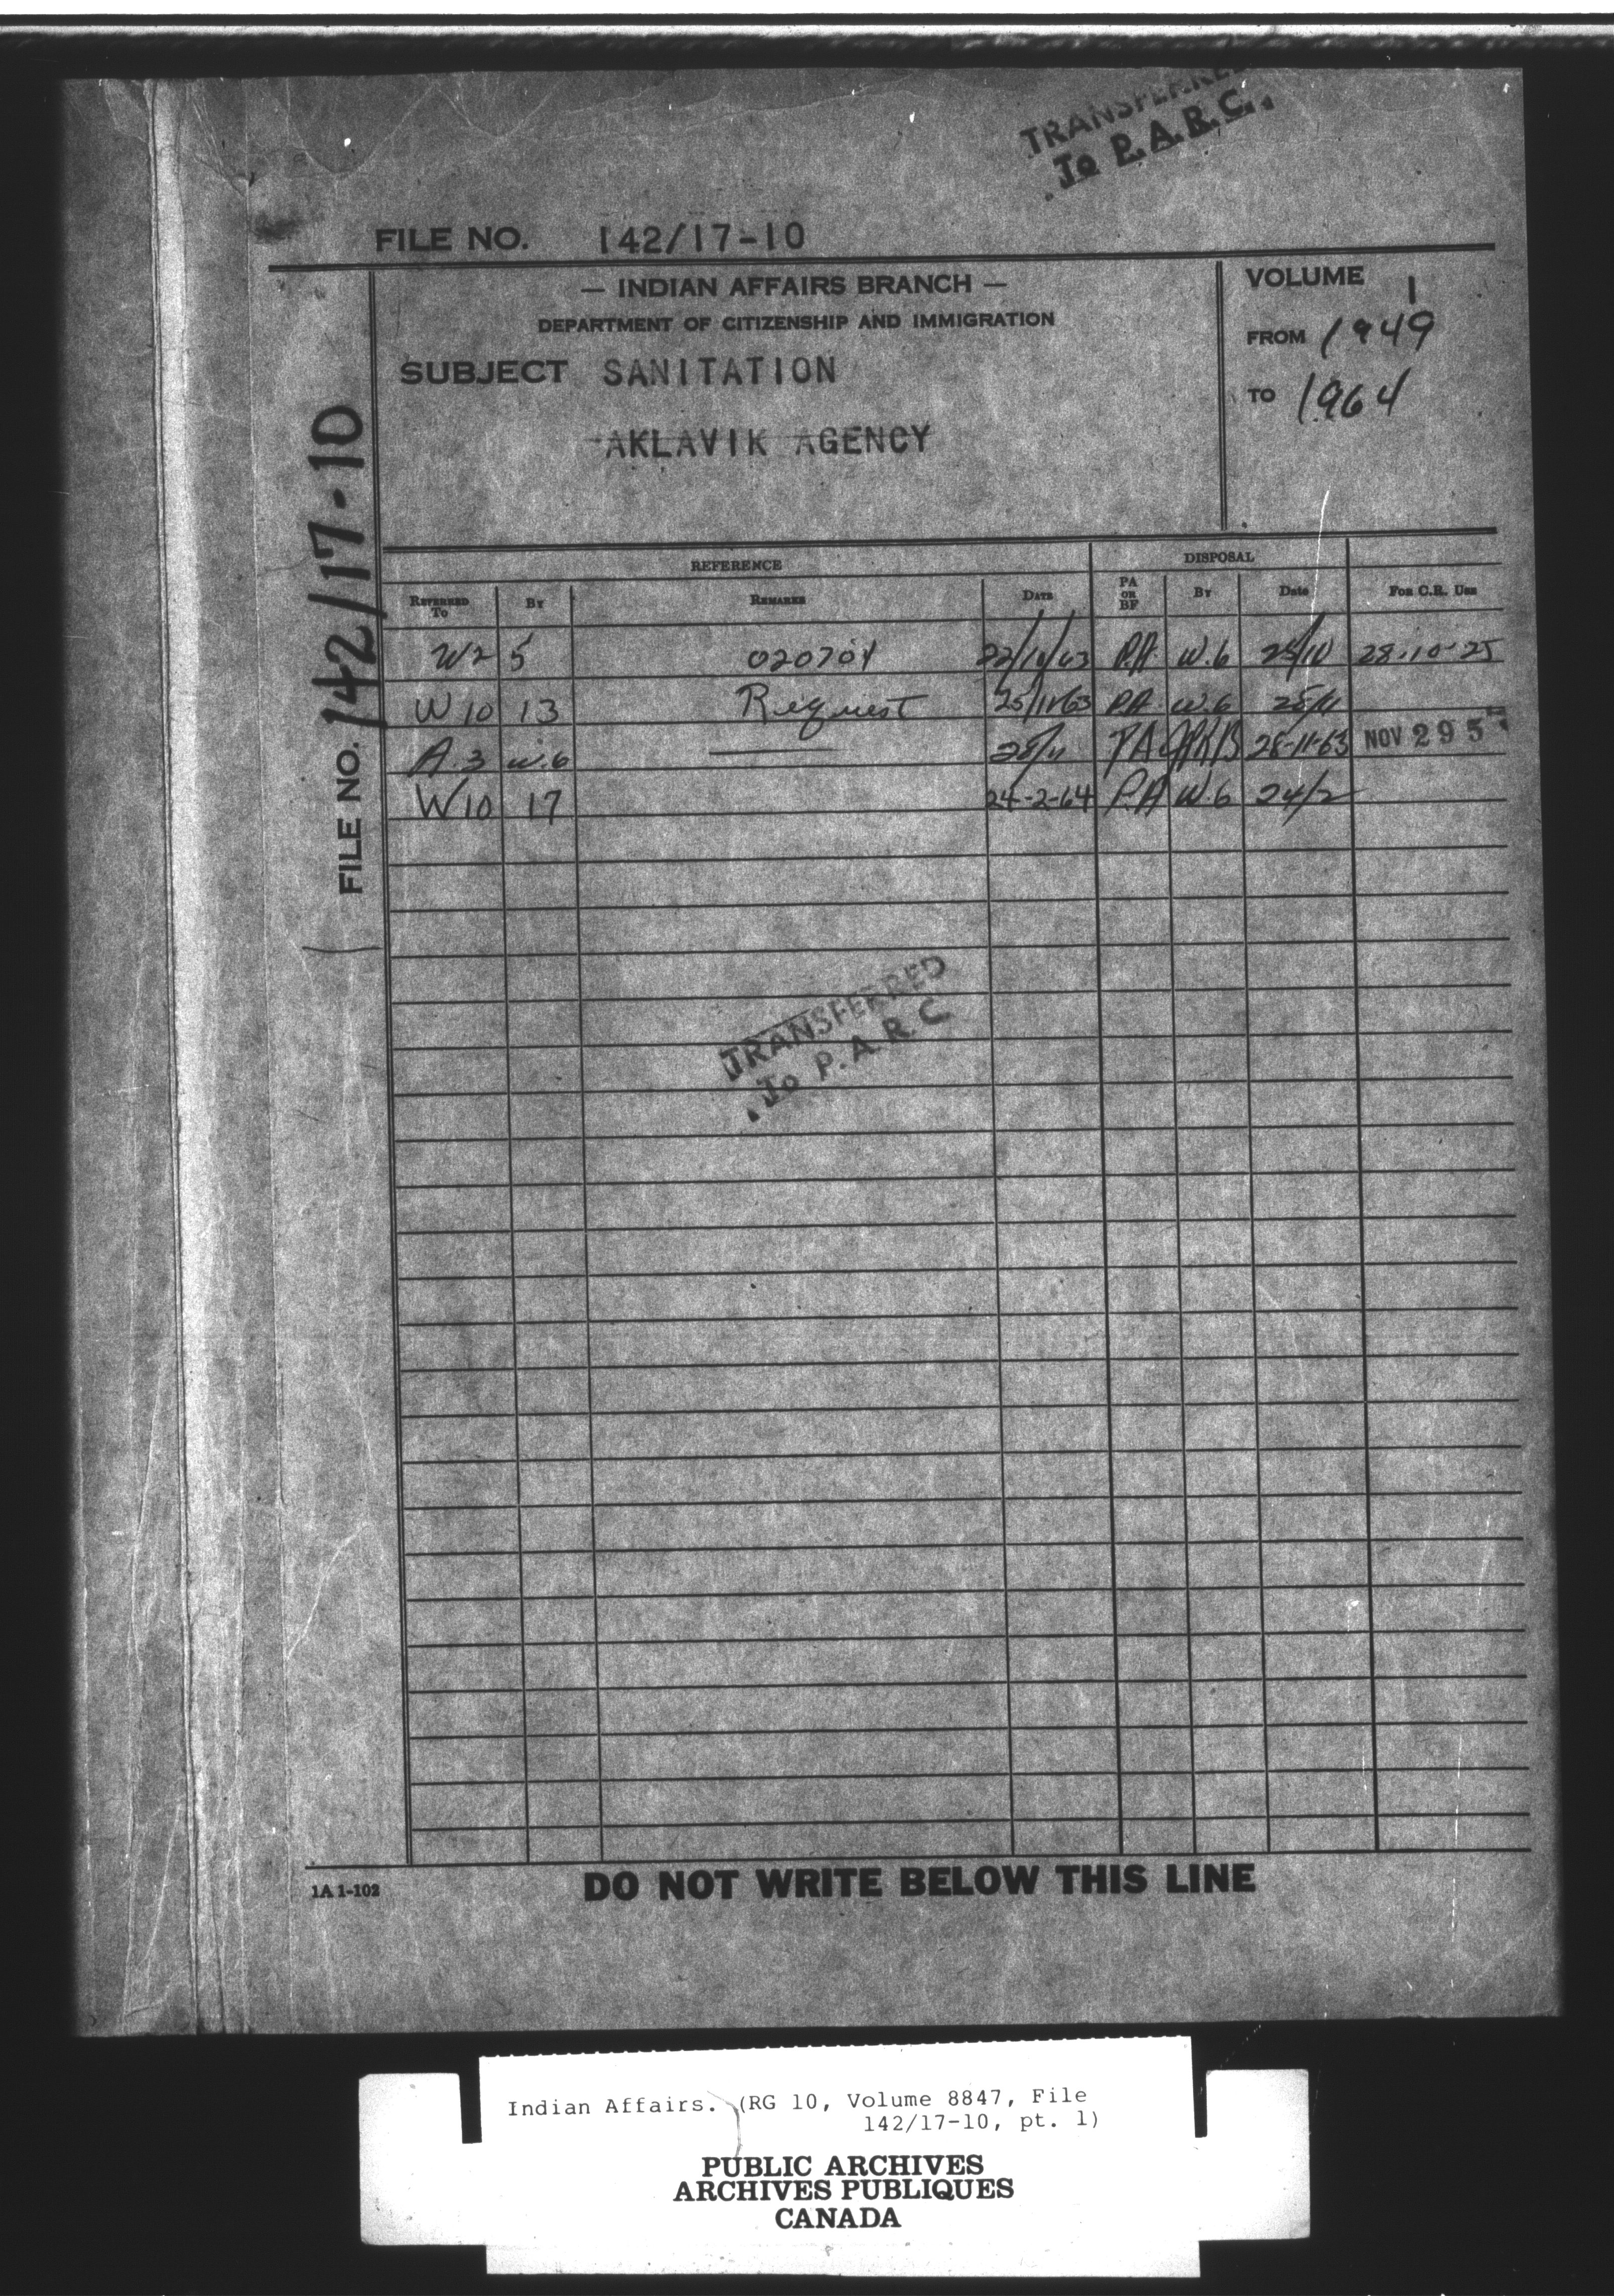 TRANSFERRED
To P.A.R.C.
FILE NO. 142/17-10
— INDIAN AFFAIRS BRANCH —
DEPARTMENT OF CITIZENSHIP AND IMMIGRATION
SUBJECT SANITATION
AKLAVIK AGENCY
VOLUME 1
FROM 1949
TO 1964
FILE NO. 142/17-10
REFERENCE DISPOSAL
REFERRED To BY REMARKS DATE PA OR BF BY Date FOR C.R. USE
W2 5 020704 22/10/63 P.A. W.6 25/10 28-10-25
W10 13 Request 25/11/63 P.A. W.6 25/11
A.3 W.6 — 28/11 PA 28-11-63 NOV 29 5
W10 17 24-2-64 P.A W.6 24/2
TRANSFERRED
To P.A.R.C.
1A 1-102 DO NOT WRITE BELOW THIS LINE
Indian Affairs. (RG 10, Volume 8847, File
142/17-10, pt. 1)
PUBLIC ARCHIVES
ARCHIVES PUBLIQUES
CANADA